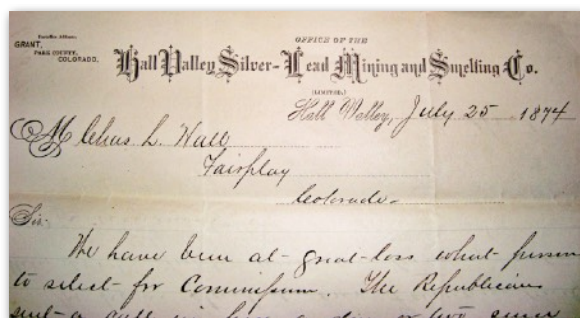 Postoffice Address,
GRANT,
PARK COUNTY,
COLORADO.
OFFICE OF THE
Hall Valley Silver-Lead Mining and Smelting Co.
(LIMITED.)
Hall Valley, July 25 1874
M Chas L. Hall
Fairplay
Colorado-
Sir-
We have been at great loss what person
to select for Commissioner. The Republicans
sent a call in here a day or two since